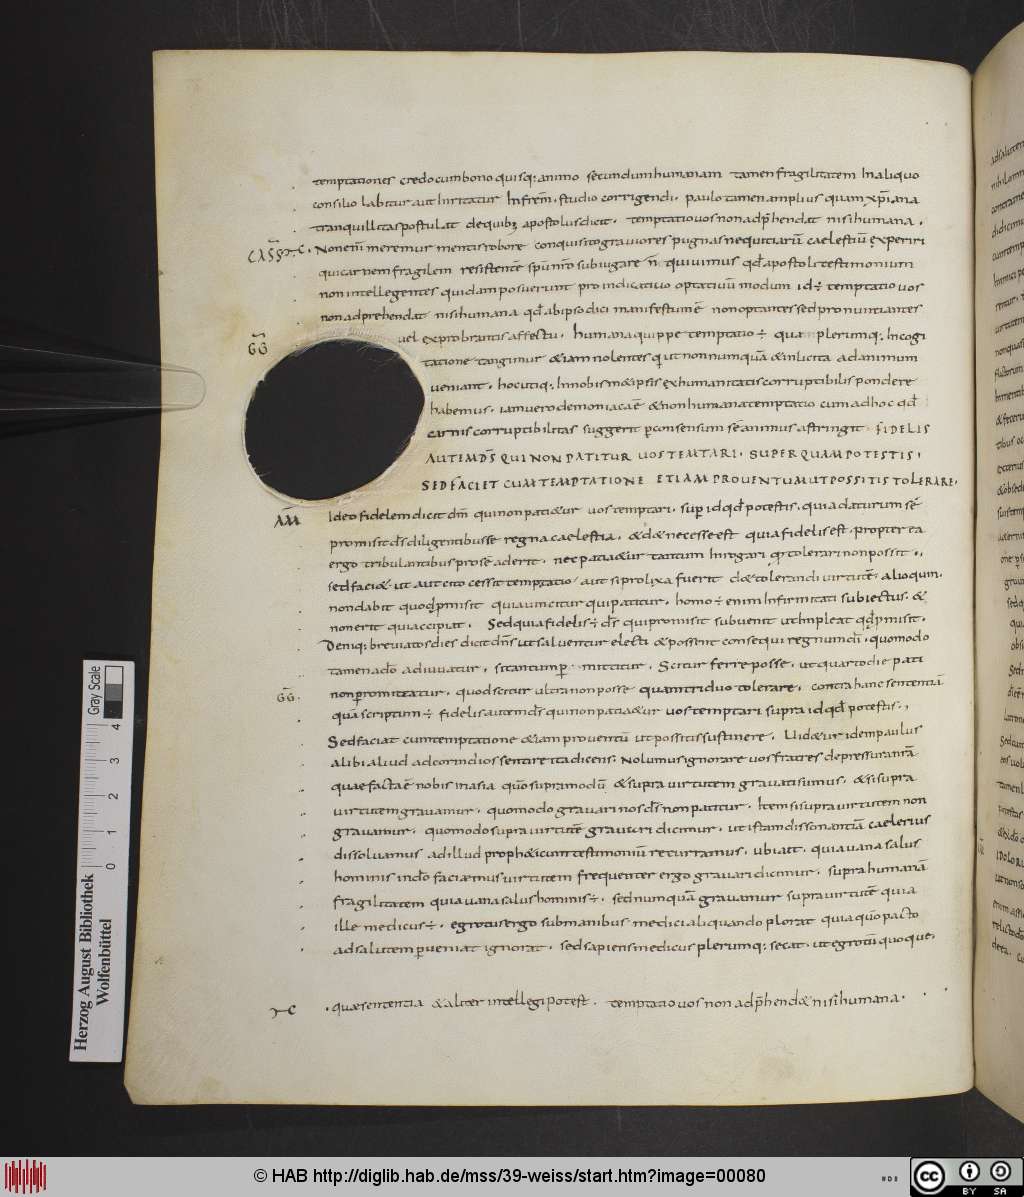 temptationes credo cum bono quisq: animo secundum humanam tamen fragilitatem In aliquo
consilio labitur aut Inritatur Infrem̄. studio corrigendi. paulo tamen amplius quam xp̄iana
tranquillitas postulat de quib; apostolus dicit. temptatio uos non adp̄hendat nisi humana.
CASS Non enī meremur mentis robore conquisito grauiores pugnas nequitiarū caelestiū experiri
qui carnem fragilem resistentē sp̄ui nr̄o subiugare n̄ quiuimus qd̄ apostoli testimonium
non intellegentes quidam posuerunt pro indicatiuo optatiuū modum id÷ temptatio uos
non adprehendat nisi humana qd̄ ab ipso dici manifestum ē non optantes sed pronuntiantes
GḠ uel exprobrantis affectu. humana quippe temptatio÷ qua plerumq: Incogi
tatione tangimur &iam nolentes q ut nonnumquā & inlicita ad animum
ueniant. hoc utiq: In nobis m&ipsis ex humanitatis corruptibilis pondere
habemus. iam uero demoniaca ē & non humana temptatio cum ad hoc qd̄
carnis corruptibilitas suggerit p consensum se animus astringit FIDELIS
AUTEM DS̄ QUI NON PATITUR UOS TEMTARI. SUPER QUAM POTESTIS.
SED FACIET CUM TEMPTATIONE ETIAM PROUENTUM UT POSSITIS TOLERARE.
AM̄ Ideo fidelem dicit dm̄ qui non pati&ur uos temptari. sup id qd̄ potestis. quia daturum sē
promisit ds̄ diligentibus se regna caelestia. & d& necesse est quia fidelis est. propter ea
ergo tribulantibus pro se aderit. nec pati&ur tantum Inrogari qd tolerari non possit.,
sed faci& ut aut cito cess& temptatio aut si prolixa fuerit d& tolerandi uirtutē. alioquin.
non dabit quod pmisit quia uincitur qui patitur. homo÷ enim Infirmitati subiectus. &
non erit qui accipiat. Sed quia fidelis÷ ds̄ qui promisit subuenit ut Impleat qd̄ pmisit.
Deniq: breuiatos dies dicit dn̄s ut saluentur electi & possent consequi regnum dī. quomodo
tamen a dō adiuuatur. si tantum p mittitur. Scitur ferre posse. ut quarto die pati
GḠ. non promittatur. quod scitur ultra non posse quam triduo tolerare. contra hanc sententiā
quā scriptum÷ fidelis autem ds̄ qui non pati&ur uos temptari supra id qd̄ potestis.,
Sed faciat cum temptatione &iam prouentū ut possitis sustinere. Uid&ur idem paulus
alibi aliud ad corindios sentire ita dicens. Nolumus ignorare uos fratres de pressura nrā
quae facta ē nobis in asia quō supra modū & supra uirtutem grauati sumus. & si supra
uirtutem grauamur. quomodo grauari nos ds̄ non patitur. Item si supra uirtutem non
grauamur. quomodo supra uirtutē grauari dicimur. ut istam dissonantiā caelerius
dissoluamus ad illud proph&icum testimoniū recurramus. ubi ait. quia uana salus
hominis In dō faciaemus uirtutem frequenter ergo grauari dicimur. supra humanā
fragilitatem quia uana salus hominis÷. sed numquā grauamur supra uirtutē quia
ille medicus÷. egrotus ergo sub manibus medici aliquando plorat quia quō pacto
ad salutem pueniat ignorat. sed sapiens medicus plerumq: secat. ut egrotū quoque.
quae sententia & aliter intellegi potest. temptatio uos non adp̄hend& nisi humana.
Herzog August Bibliothek
Wolfenbüttel
Gray Scale
0 1 2 3 4
© HAB http://diglib.hab.de/mss/39-weiss/start.htm?image=00080
cc BY SA